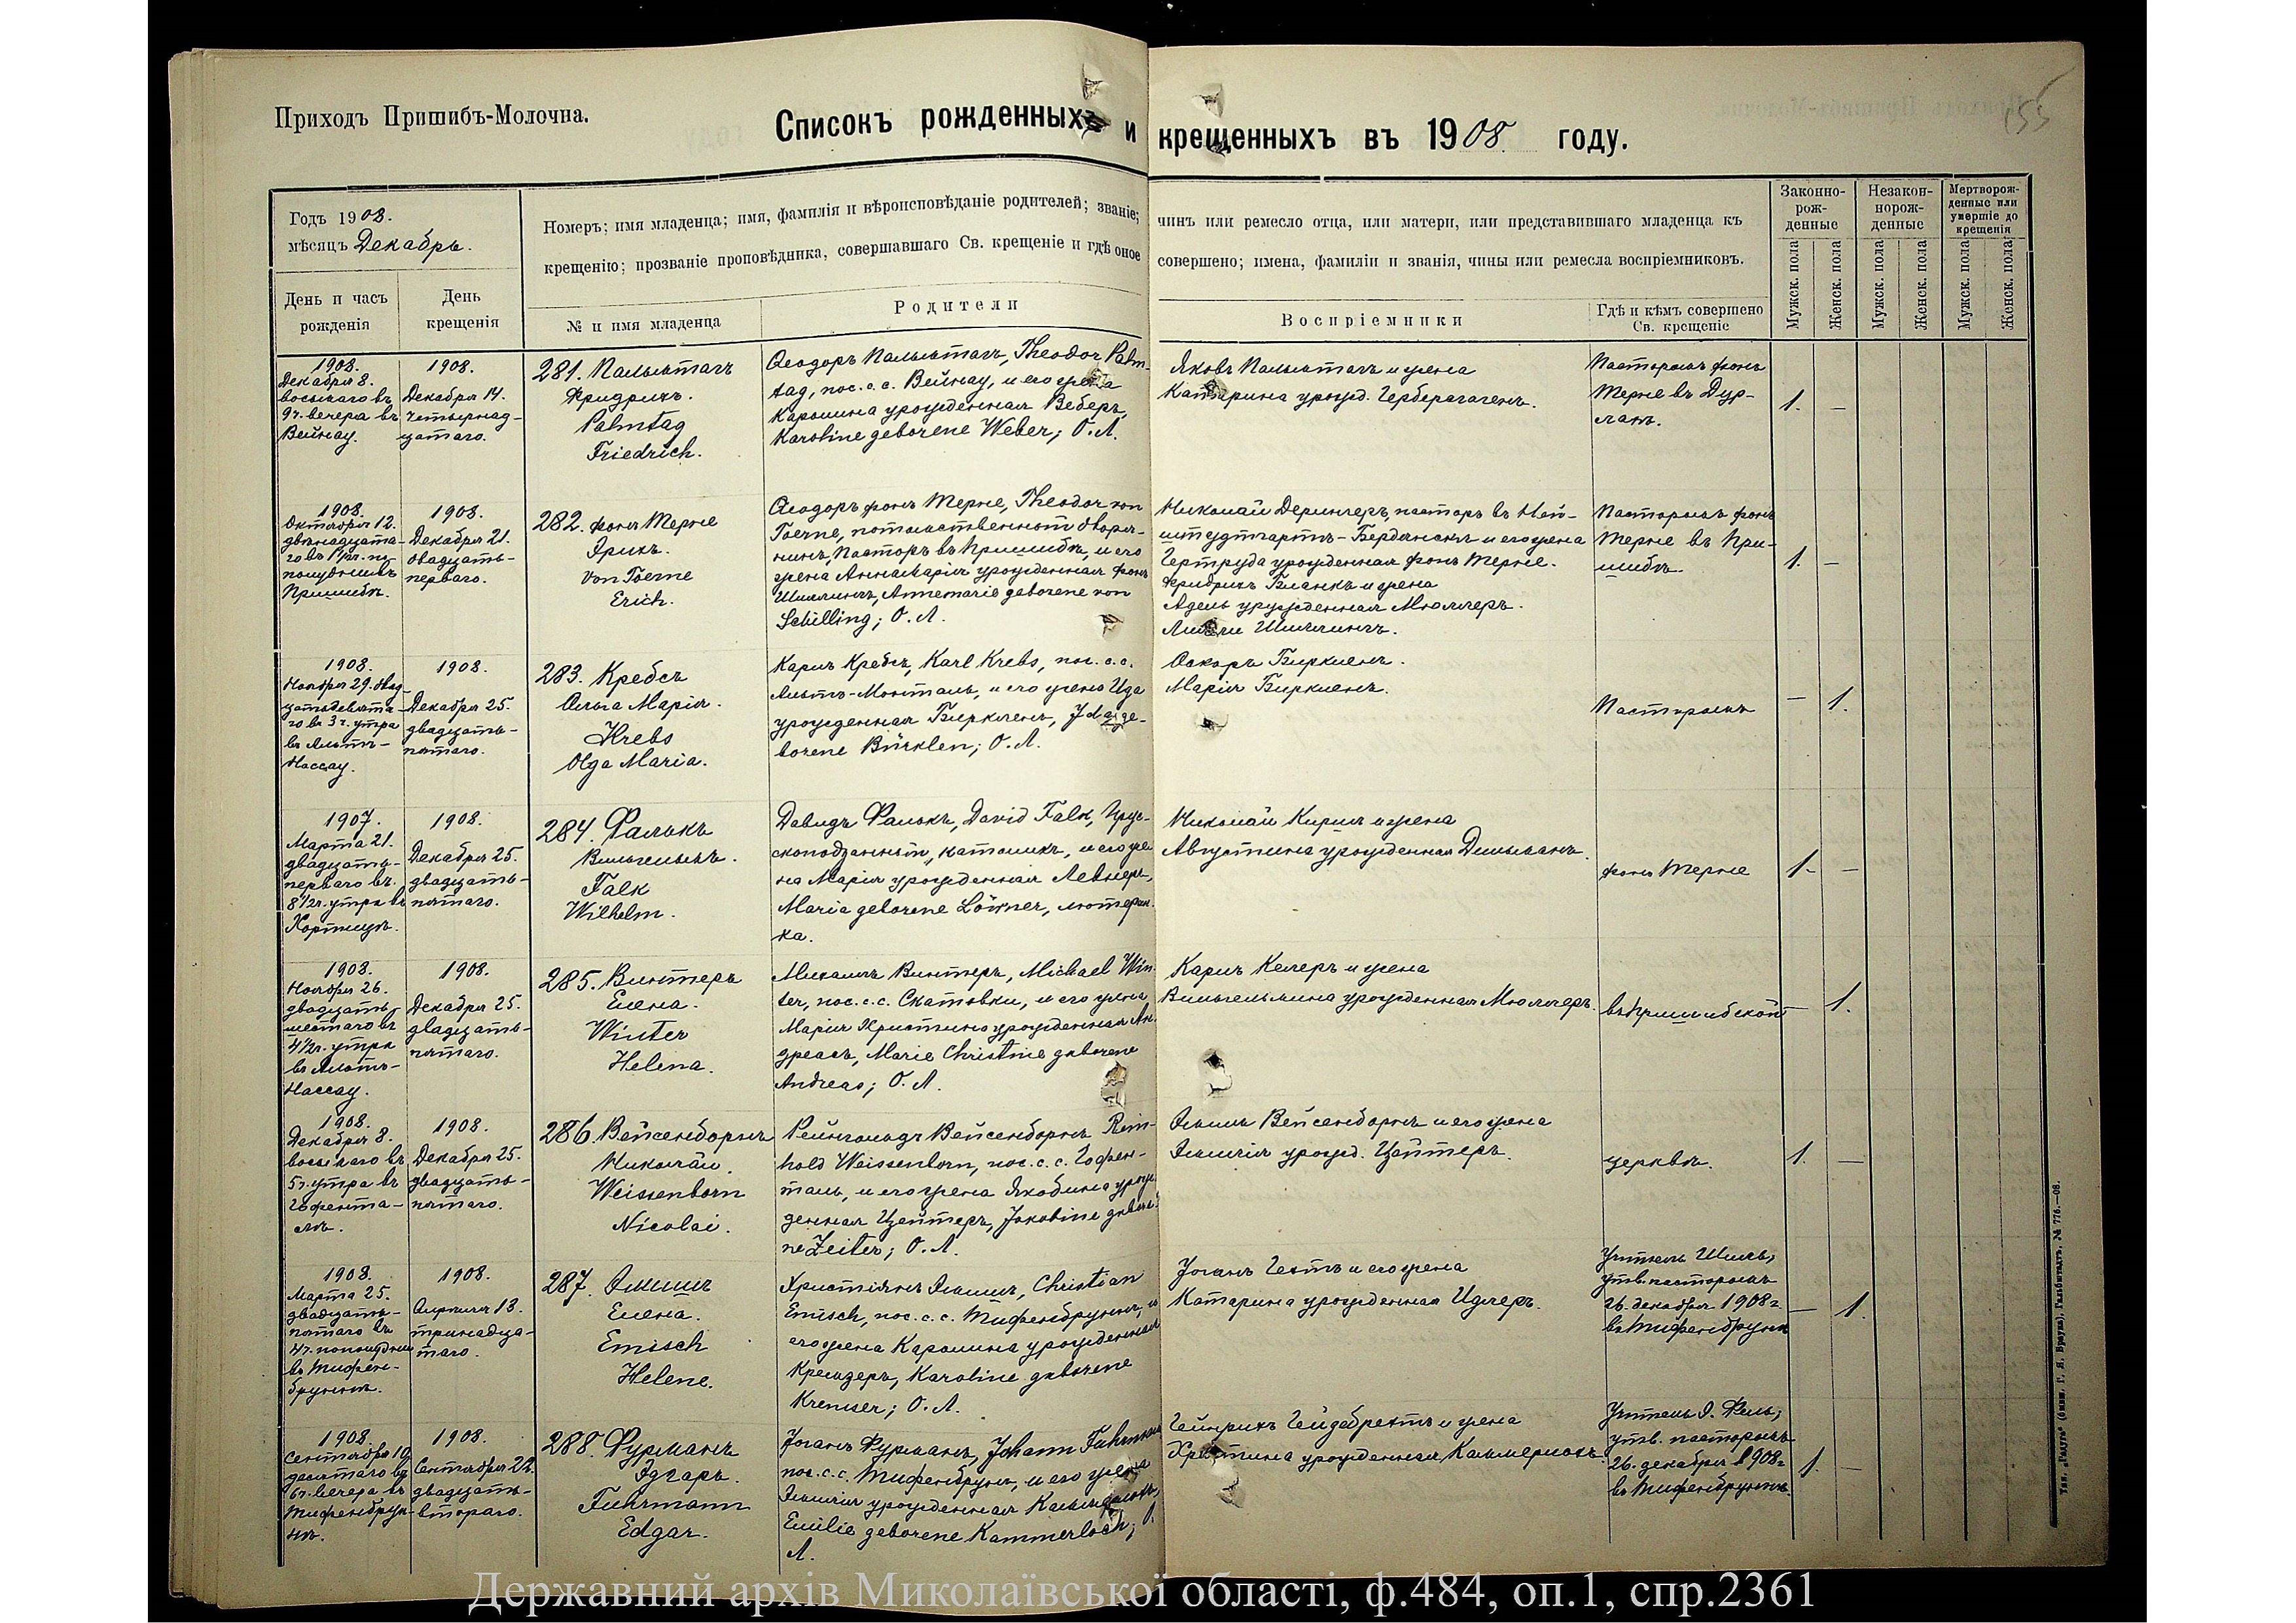 Приходъ Пришибъ-Молочна.
Списокъ рожденныхъ и крещенныхъ въ 1908 году.
155
Годъ 1908.
мѣсяцъ Декабрь.
День и часъ
рожденія
День
крещенія
Номеръ; имя младенца; имя, фамилія и вѣроисповѣданіе родителей; званіе;
крещенію; прозваніе проповѣдника, совершавшаго Св. крещеніе и гдѣ оное
№ и имя младенца
Родители
чинъ или ремесло отца, или матери, или представившаго младенца къ
совершено; имена, фамиліи и званія, чины или ремесла воспріемниковъ.
Воспріемники
Гдѣ и кѣмъ совершено
Св. крещеніе
Законно-
рож-
денные
Незакон-
норож-
денные
Мертворож-
денные или
умершіе до
крещенія
Мужск. пола
Женск. пола
Мужск. пола
Женск. пола
Мужск. пола
Женск. пола
1908.
Декабря 8.
восьмаго въ
9 ч. вечера въ
Вейнау.
1908.
Декабря 14.
четырнад-
цатаго.
281. Пальмтагъ
Фридрихъ.
Palmtag
Friedrich.
Ѳеодоръ Пальмтагъ, Theodor Palm-
tag, пос. с. с. Вейнау, и его жена
Каролина урожденная Веберъ,
Karoline geborene Weber; О. Л.
Яковъ Пальмтагъ и жена
Катарина урожд. Герберсгагенъ.
Пасторомъ фонъ
Терне въ Дур-
лахъ.
1. —
1908.
Октября 12.
двѣнадцата-
го въ 1 1/2 ч. по-
полудни въ
Пришибѣ.
1908.
Декабря 21.
двадцать-
перваго.
282. фонъ Терне
Эрихъ.
von Töerne
Erich.
Ѳеодоръ фонъ Терне, Theodor von
Toerne, потомственный дворя-
нинъ, Пасторъ въ Пришибѣ, и его
жена Аннемарія урожденная фонъ
Шиллингъ, Annemarie geborene von
Schilling; О. Л.
Николай Дерингеръ, пасторъ въ Ней-
штудтгартъ-Бердянскъ и его жена
Гертруда урожденная фонъ Терне.
Фридрихъ Бланкъ и жена
Адель урожденная Мюллеръ.
Шиллингъ.
Пасторомъ фонъ
Терне въ При-
шибѣ.
1. —
1908.
Ноября 29. двад-
цатьдевята-
го въ 3 ч. утра
въ Альтъ-
Нассау.
1908.
Декабря 25.
двадцать-
пятаго.
283. Кребсъ
Ольга Марія.
Krebs
Olga Maria.
Карлъ Кребсъ, Karl Krebs, пос. с. с.
Альтъ-Монталь, и его жена Ида
урожденная Бирклень, Ida ge-
borene Bürklen; О. Л.
Оскаръ Бирклень.
Марія Бирклень.
Пасторомъ
— 1.
1907.
Марта 21.
двадцать-
перваго въ
8 1/2 ч. утра въ
Хортицѣ.
1908.
Декабря 25.
двадцать-
пятаго.
284. Фалькъ
Вильгельмъ.
Falk
Wilhelm.
Давидъ Фалькъ, David Falk, Прус-
скоподданный, католикъ, и его же-
на Марія урожденная Левнеръ,
Maria geborene Löwner, лютеран-
ка.
Николай Кирш и жена
Августина урожденная Дильманъ.
фонъ Терне
1. —
1908.
Ноября 26.
двадцать-
шестаго въ
4 1/2 ч. утра
въ Альтъ-
Нассау.
1908.
Декабря 25.
двадцать-
пятаго.
285. Винтеръ
Елена.
Winter
Helena.
Михаилъ Винтеръ, Michael Win-
ter, пос. с. с. Скатовки, и его жена
Марія Христина урожденная Ан-
дреасъ, Marie Christine geborene
Andreas; О. Л.
Карлъ Келеръ и жена
Вильгельмина урожденная Мюллеръ.
въ Пришибской
1.
1908.
Декабря 8.
восьмаго въ
5 ч. утра въ
Гофента-
лѣ.
1908.
Декабря 25.
двадцать-
пятаго.
286. Вейсенборнъ
Николай.
Weissenborn
Nicolai.
Рейнгольдъ Вейсенборнъ Rein-
hold Weissenborn, пос. с. с. Гофен-
таль, и его жена Якобина урож-
денная Цейтеръ, Jakobine gebore-
ne Zeiter; О. Л.
Эмиль Вейсенборнъ и его жена
Эмилія урожд. Цейтеръ.
церквѣ.
1. —
1908.
Марта 25.
двадцать-
пятаго въ
4 ч. пополудни
въ Тифен-
бруннѣ.
1908.
Апрѣля 13.
тринадца-
таго.
287. Эмишъ
Елена.
Emisch
Helene.
Христіанъ Эмишъ, Christian
Emisch, пос. с. с. Тифенбруннъ, и
его жена Каролина урожденная
Кремзеръ, Karoline geborene
Kremser; О. Л.
Іоганъ Гехтъ и его жена
Катарина урожденная Идлеръ.
Учитель Шиль,
утв. пасторомъ
26. декабря 1908 г.
въ Тифенбруннѣ
— 1.
1908.
Сентября 10
десятаго въ
6 ч. вечера въ
Тифенбрун-
нѣ.
1908.
Сентября 22.
двадцать-
втораго.
288. Фурманъ
Эдгаръ.
Fuhrmann
Edgar.
Іоганъ Фурманъ, Johann Fuhrmann
пос. с. с. Тифенбрунъ, и его жена
Эмилія урожденная Каммерлохъ,
Emilie geborene Kammerloch; О.
Л.
Гейнрихъ Гейдебрехтъ и жена
Христина урожденная Каммерлохъ.
Учитель Э. Фель,
утв. пасторомъ
26. декабря 1908 г.
въ Тифенбруннѣ.
1. —
Тип. „Радуга" (бывш. Г. Я. Браунъ), Гальбштадтъ, № 776.—08.
Державний архів Миколаївської області, ф.484, оп.1, спр.2361